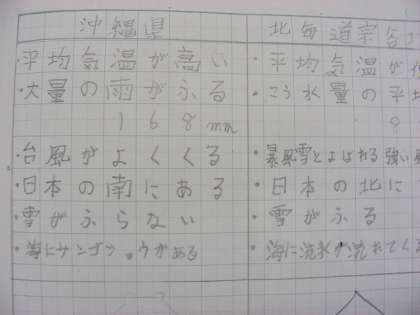 沖縄県
・平均気温が高い
・大量の雨がふる
168mm
・台風がよくくる
・日本の南にある
・雪がふらない
・海にサンゴショウがある
北海道宗谷
・平均気温が
・こう水量の平均
・暴風雪とよばれる強い
・日本の北に
・雪がふる
・海に流氷が流れてくる